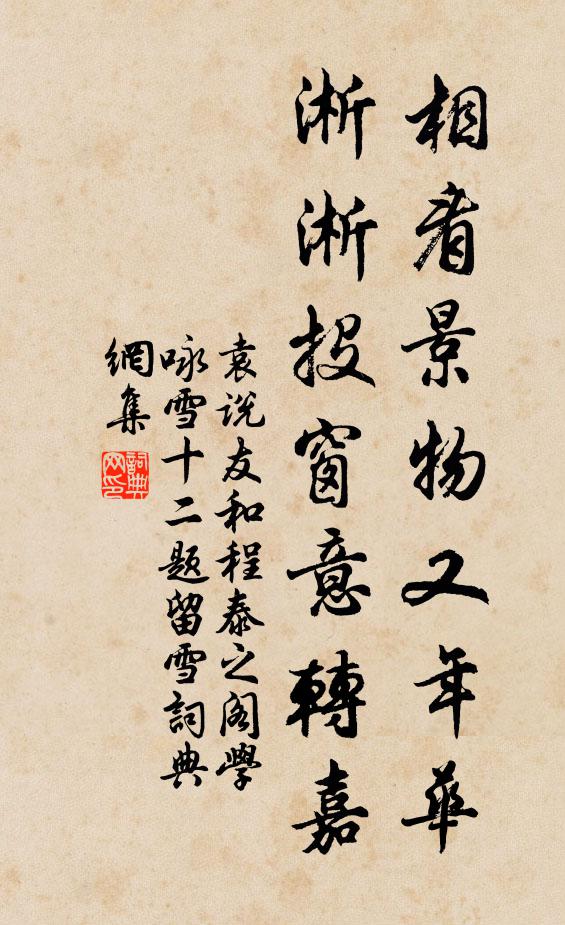 相看景物又年華
淅淅投窗意轉嘉
袁説友和程泰之阁學
咏雪十二题留雪詞典
網集
詞典
网印